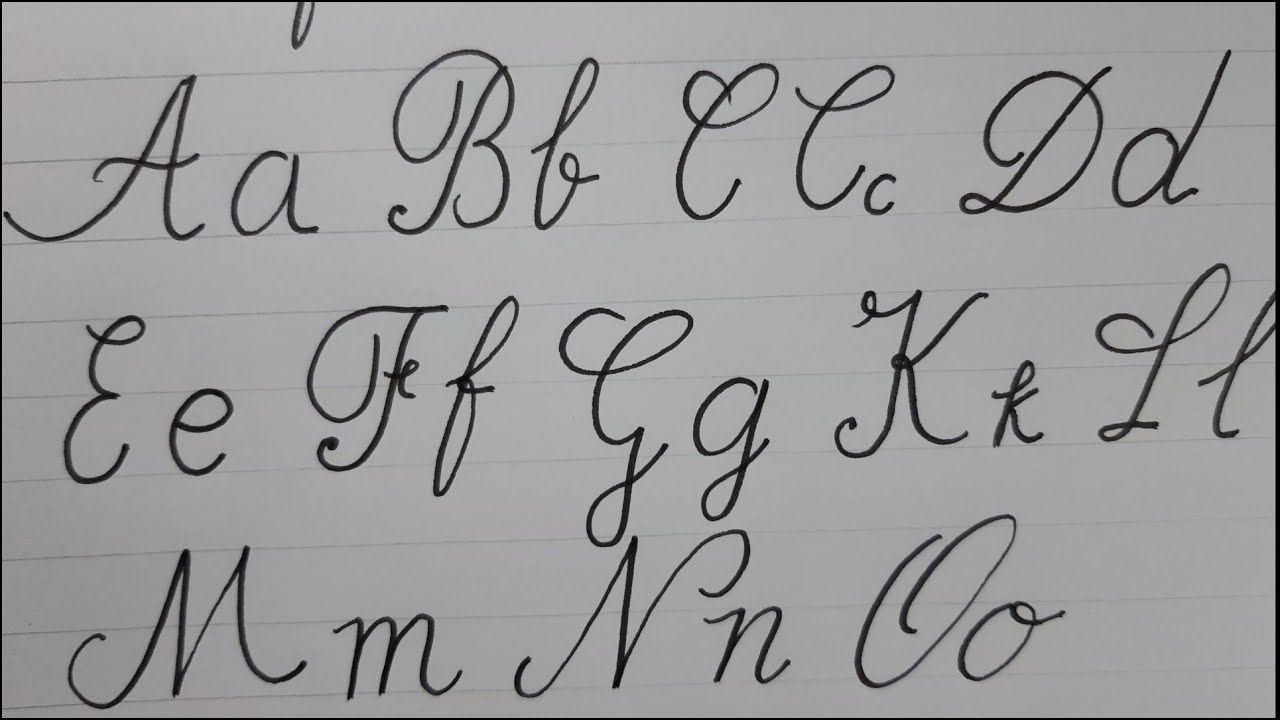 Aa Bb C Cc Dd
Ee Ff Gg Kk Ll
Mm Nn Oo